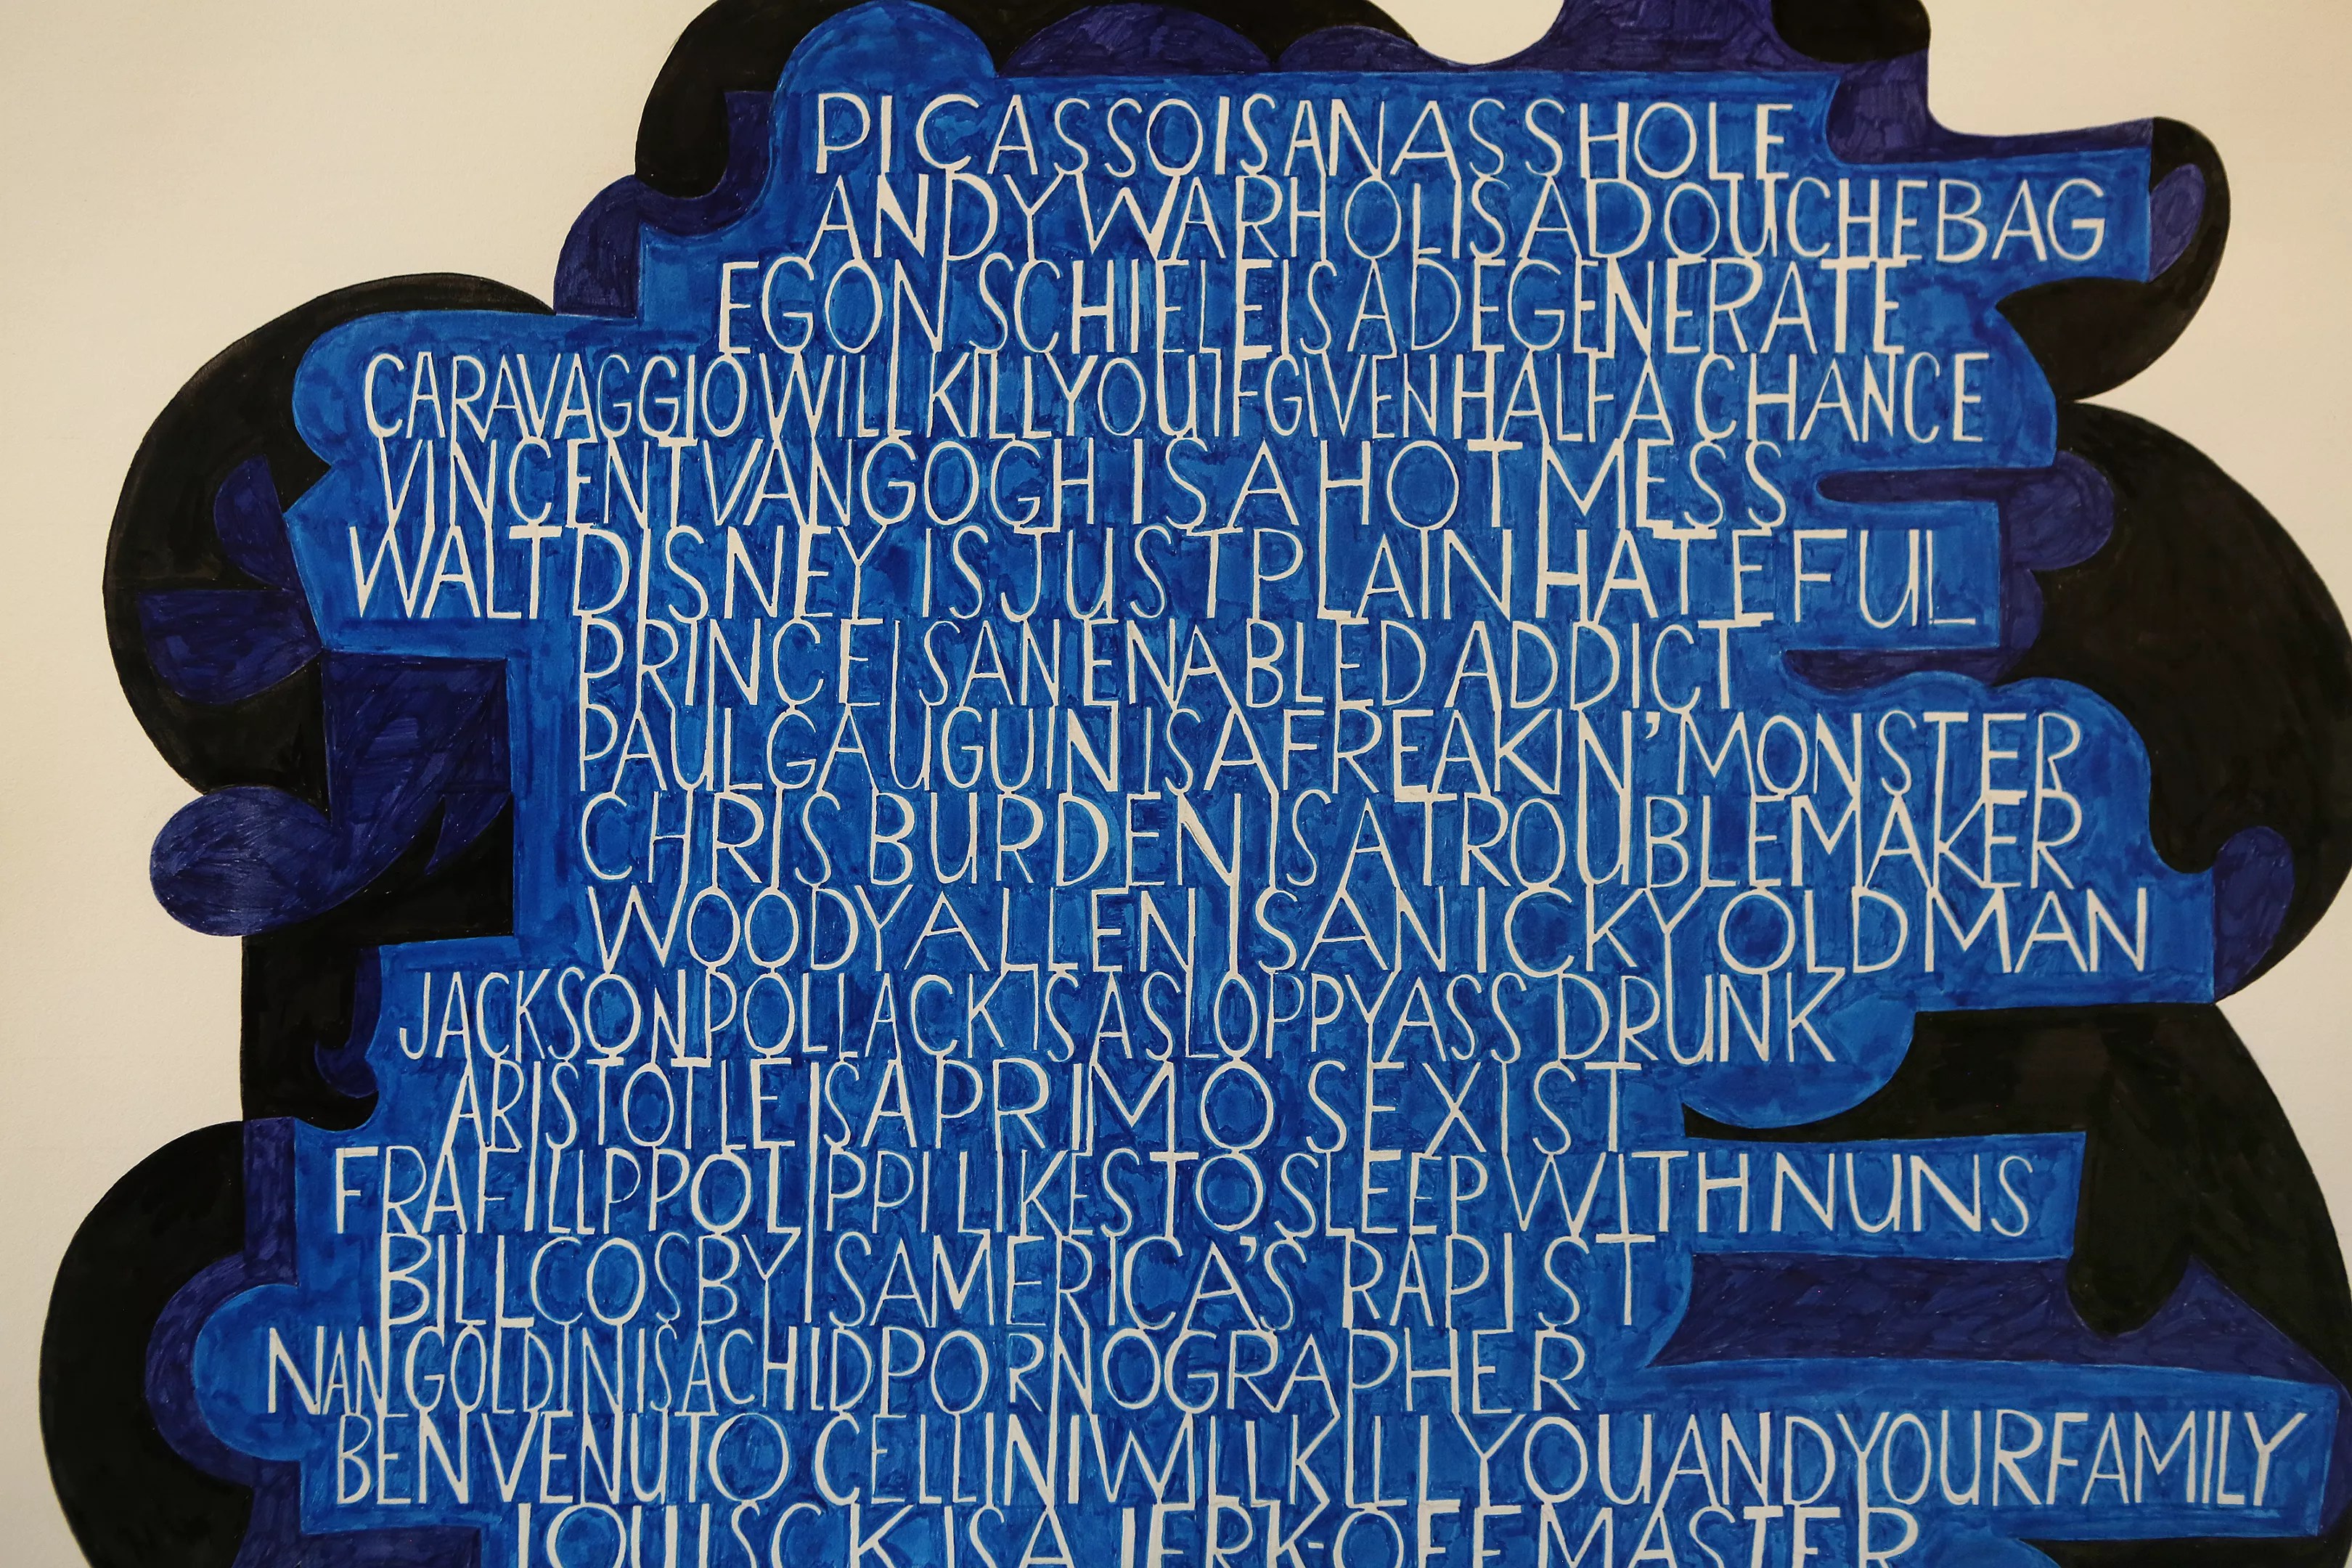 PICASSO IS AN ASSHOLE
ANDY WARHOL IS A DOUCHEBAG
EGON SCHIELE IS A DEGENERATE
CARAVAGGIO WILL KILL YOU IF GIVEN HALF A CHANCE
VINCENT VAN GOGH IS A HOT MESS
WALT DISNEY IS JUST PLAIN HATEFUL
PRINCE IS AN ENABLED ADDICT
PAUL GAUGUIN IS A FREAKIN' MONSTER
CHRIS BURDEN IS A TROUBLEMAKER
WOODY ALLEN IS AN ICKY OLD MAN
JACKSON POLLACK IS A SLOPPY ASS DRUNK
ARISTOTLE IS A PRIMO SEXIST
FRA FILLPPO LIPPI LIKES TO SLEEP WITH NUNS
BILL COSBY IS AMERICA'S RAPIST
NAN GOLDIN IS A CHILD PORNOGRAPHER
BENVENUTO CELLINI WILL KILL YOU AND YOUR FAMILY
LOUIS CK IS A JERK-OFF MASTER